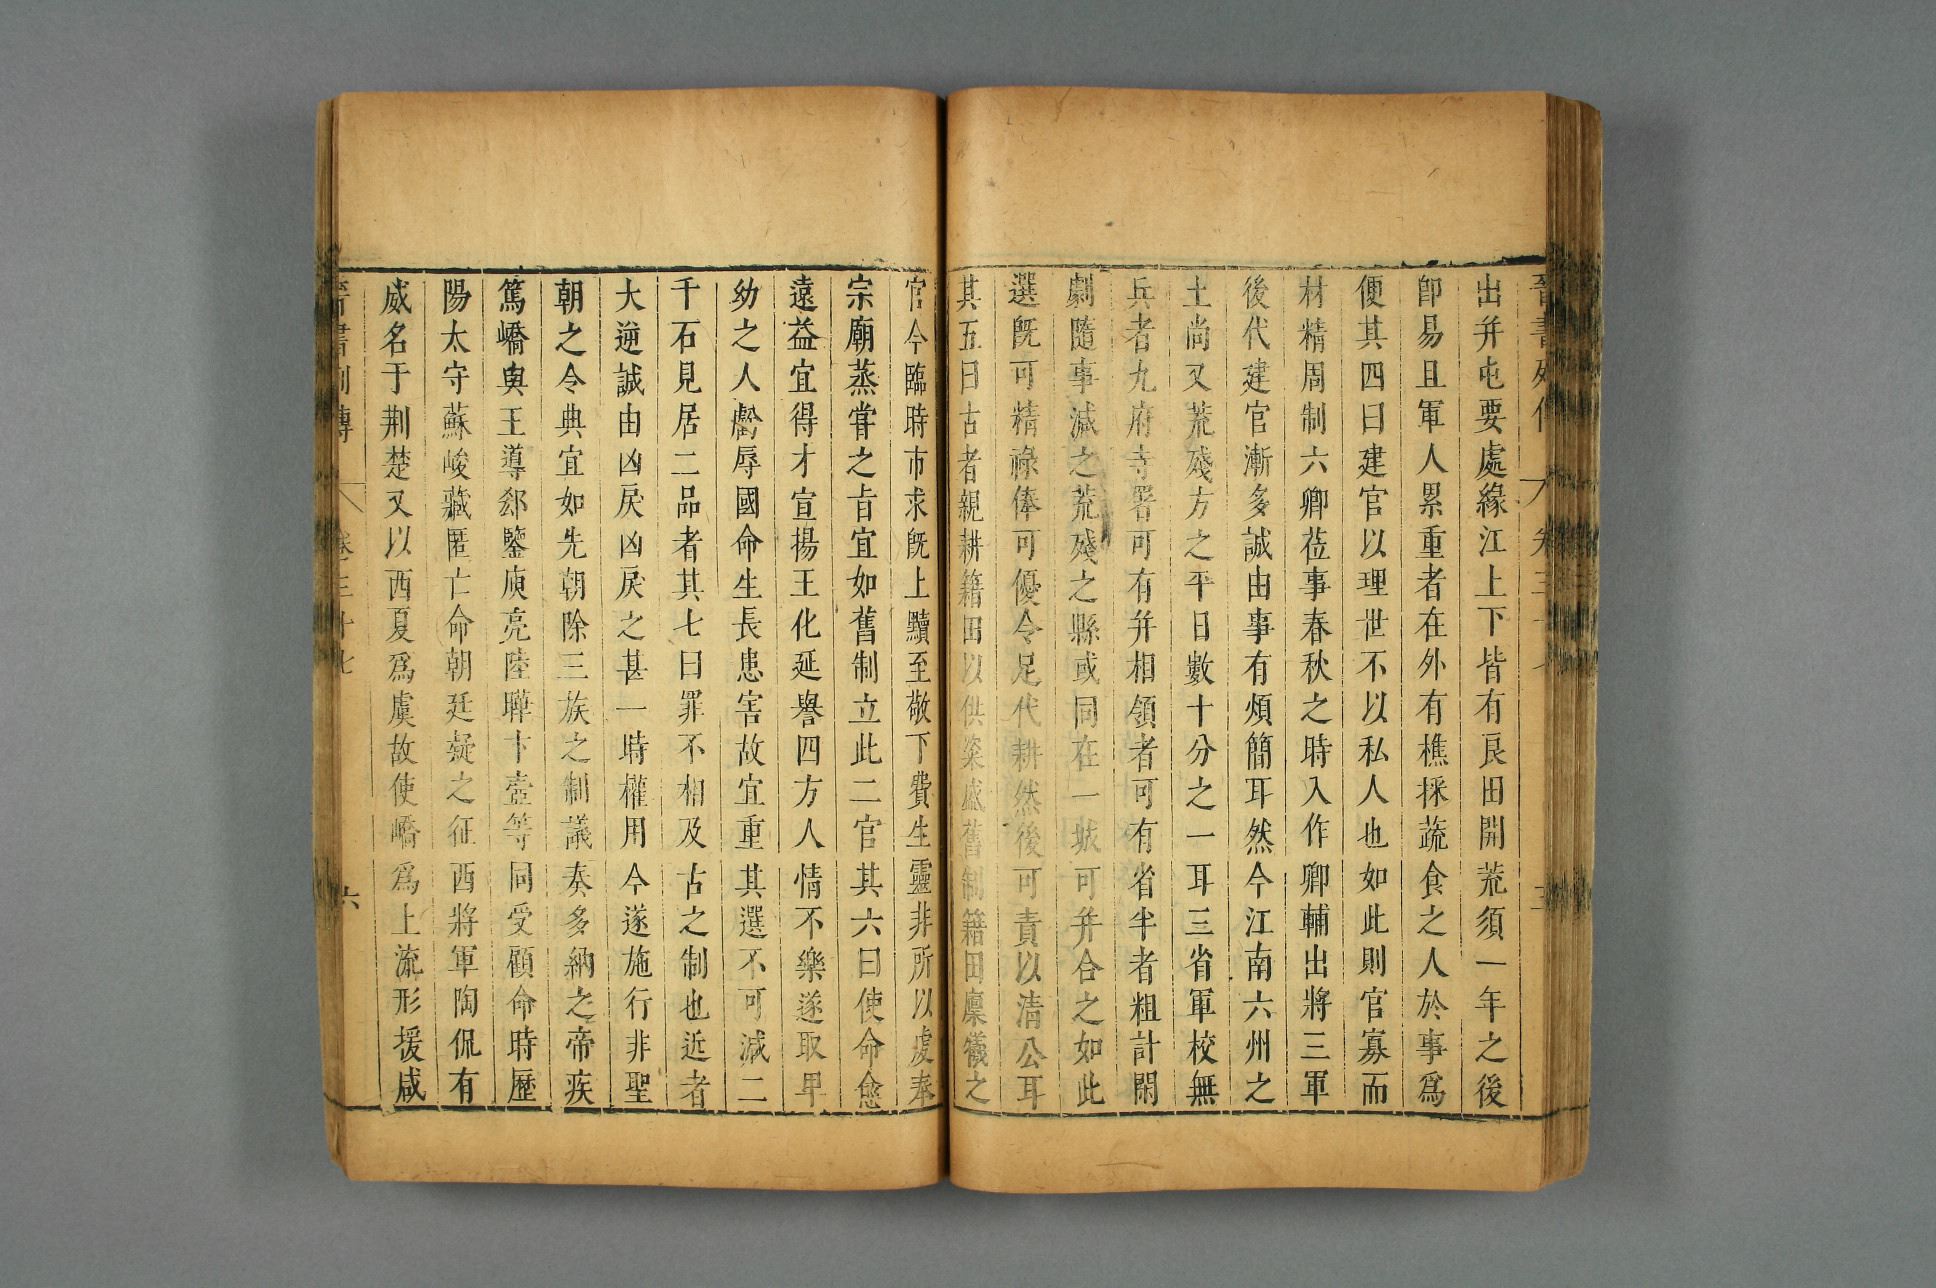 出并屯要處緣江上下皆有良田開荒須一年之後
卽易且軍人累重者在外有樵採蔬食之人於事爲
便其四曰建官以理世不以私人也如此則官寡而
材精周制六卿莅事春秋之時入作卿輔出將三軍
後代建官漸多誠由事有煩簡耳然今江南六州之
土尚又荒殘方之平日數十分之一耳三省軍校無
兵者九府寺署可有并相領者可有省半者粗計閑
劇隨事減之荒殘之縣或同在一城可并合之如此
選旣可精祿俸可優令足代耕然後可責以清公耳
其五曰古者親耕籍田以供粢盛舊制籍田廩犧之
官今臨時市求旣上黷至敬下費生靈非所以虔奉
宗廟蒸嘗之旨宜如舊制立此二官其六曰使命愈
遠益宜得才宣揚王化延譽四方人情不樂遂取卑
幼之人虧辱國命生長患害故宜重其選不可減二
千石見居二品者其七曰罪不相及古之制也近者
大逆誠由凶戾凶戾之甚一時權用今遂施行非聖
朝之令典宜如先朝除三族之制議奏多納之帝疾
篤嶠與王導郄鑒庾亮陸曄卞壼等同受顧命時歷
陽太守蘇峻藏匿亡命朝廷疑之征西將軍陶侃有
威名于荆楚又以西夏爲虞故使嶠爲上流形援咸
晉書列傳 卷三十七 六